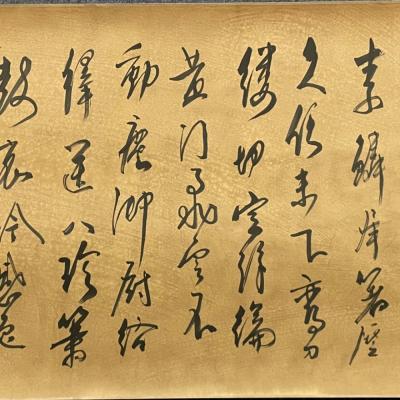 素鱗犀箸厭
久飫未下鸞刀
縷切空紛綸
黄门飛鞚不
動塵御厨絡
繹送八珍簫
鼓哀吟感鬼